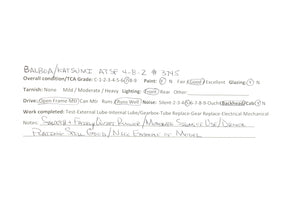 BALBOA/KATSUMI ATSF 4-8-2 # 3745
Overall condition/TCA Grade: C-1-2-3-4-5-6-7-8-9 Paint: Y N Fair/Good/Excellent Glazing Y N
Tarnish: None Mild / Moderate / Heavy Lighting: Front Rear Other
Drive: Open Frame MO Can MO Runs: Runs Well Noise: Silent-2-3-4-5-6-7-8-9-Ouch! Backhead/Cab Y N
Work completed: Test-External Lube-Internal Lube/Gearbox-Tube Replace Gear Replace-Electrical Mechanical
Notes: Smooth & Fairly Quiet Runner/
Still Good/Nice Example of Model